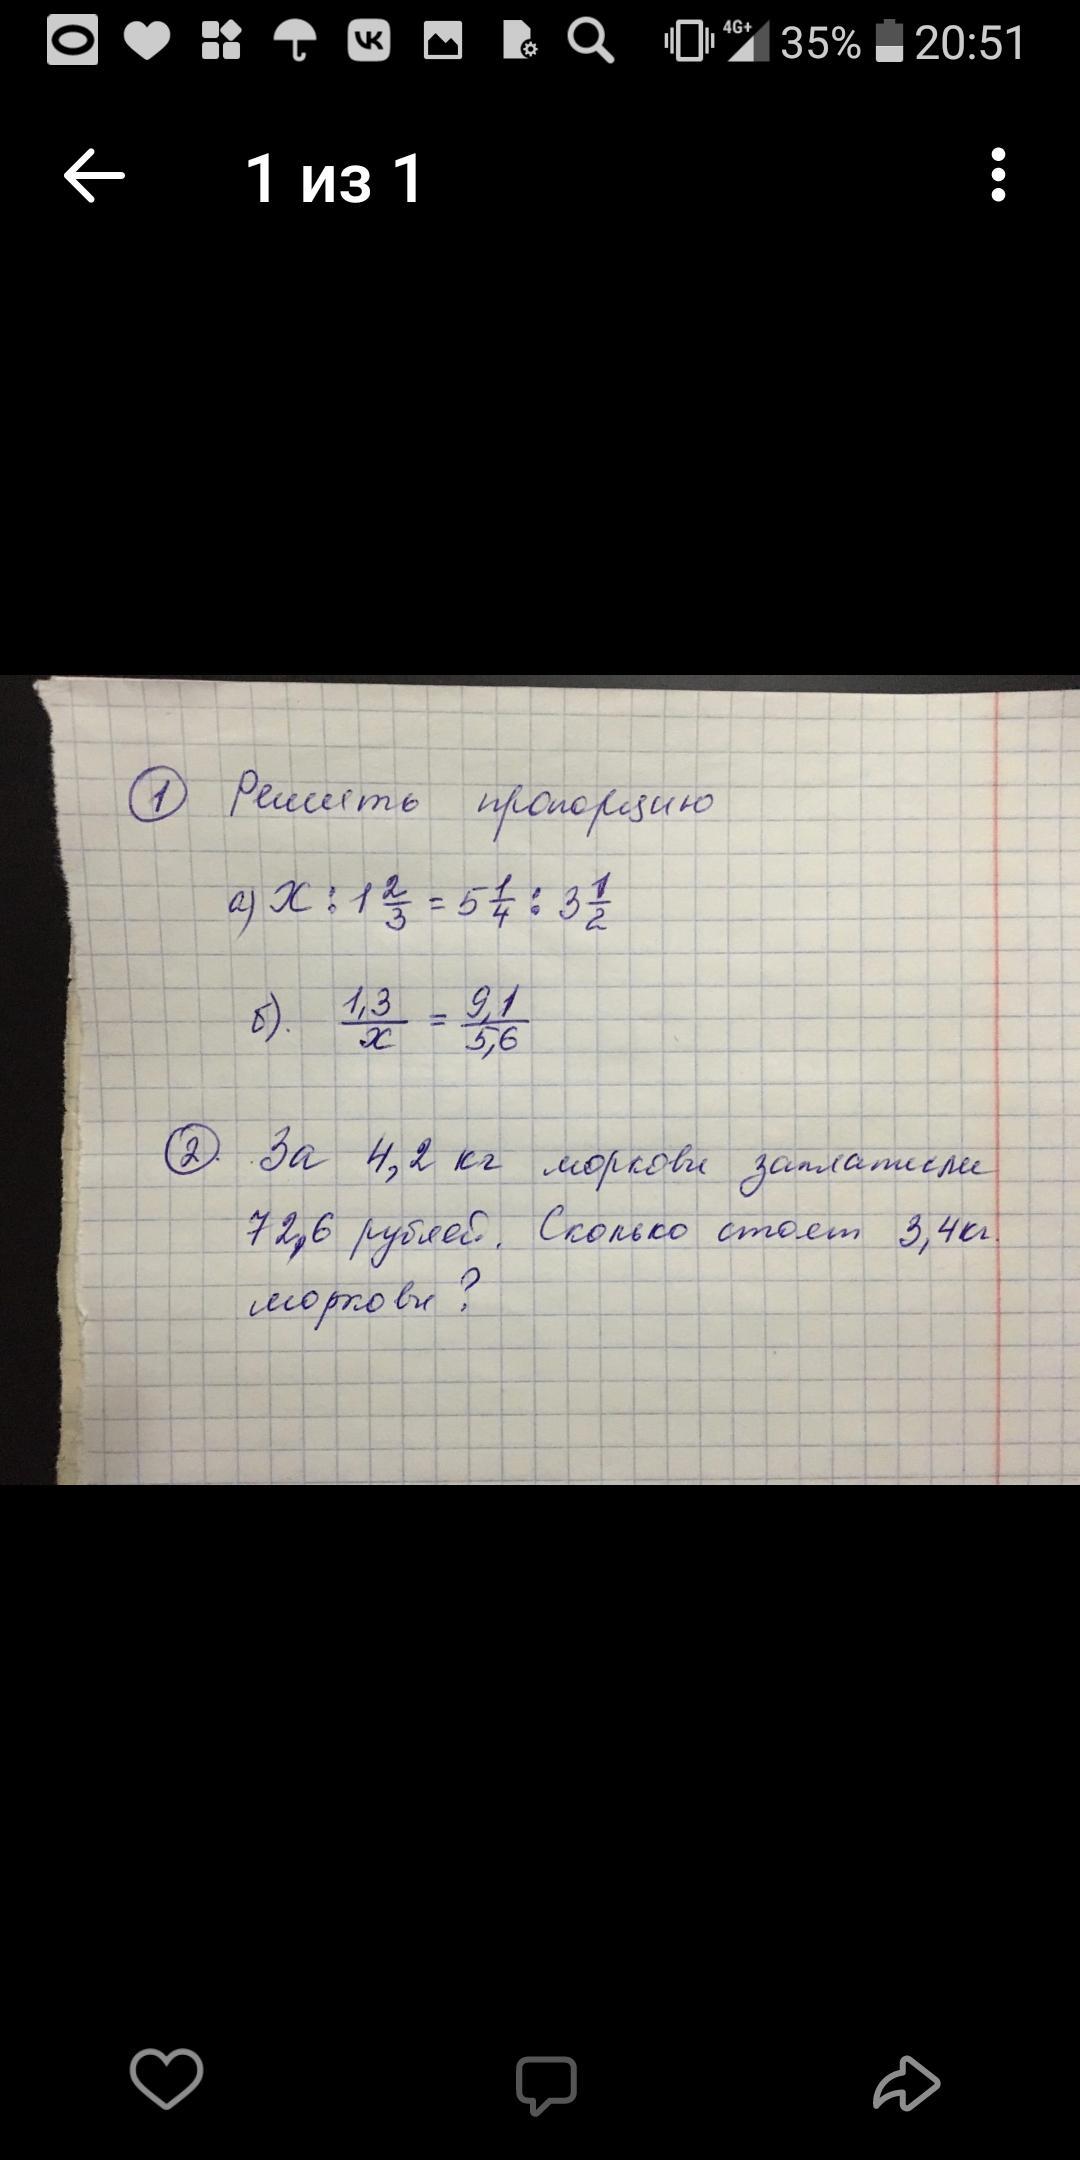 4G+ 35% 20:51
1 из 1
1 Решить пропорцию
а) x : 1 2/3 = 5 1/4 : 3 1/2
б). 1,3/x = 9,1/5,6
2. За 4,2 кг моркови заплатили
72,6 рублей. Сколько стоят 3,4 кг.
моркови?